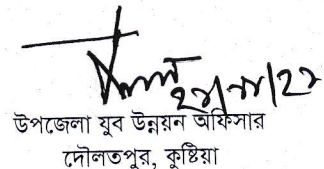 উপজেলা যুব উন্নয়ন অফিসার
দৌলতপুর, কুষ্টিয়া